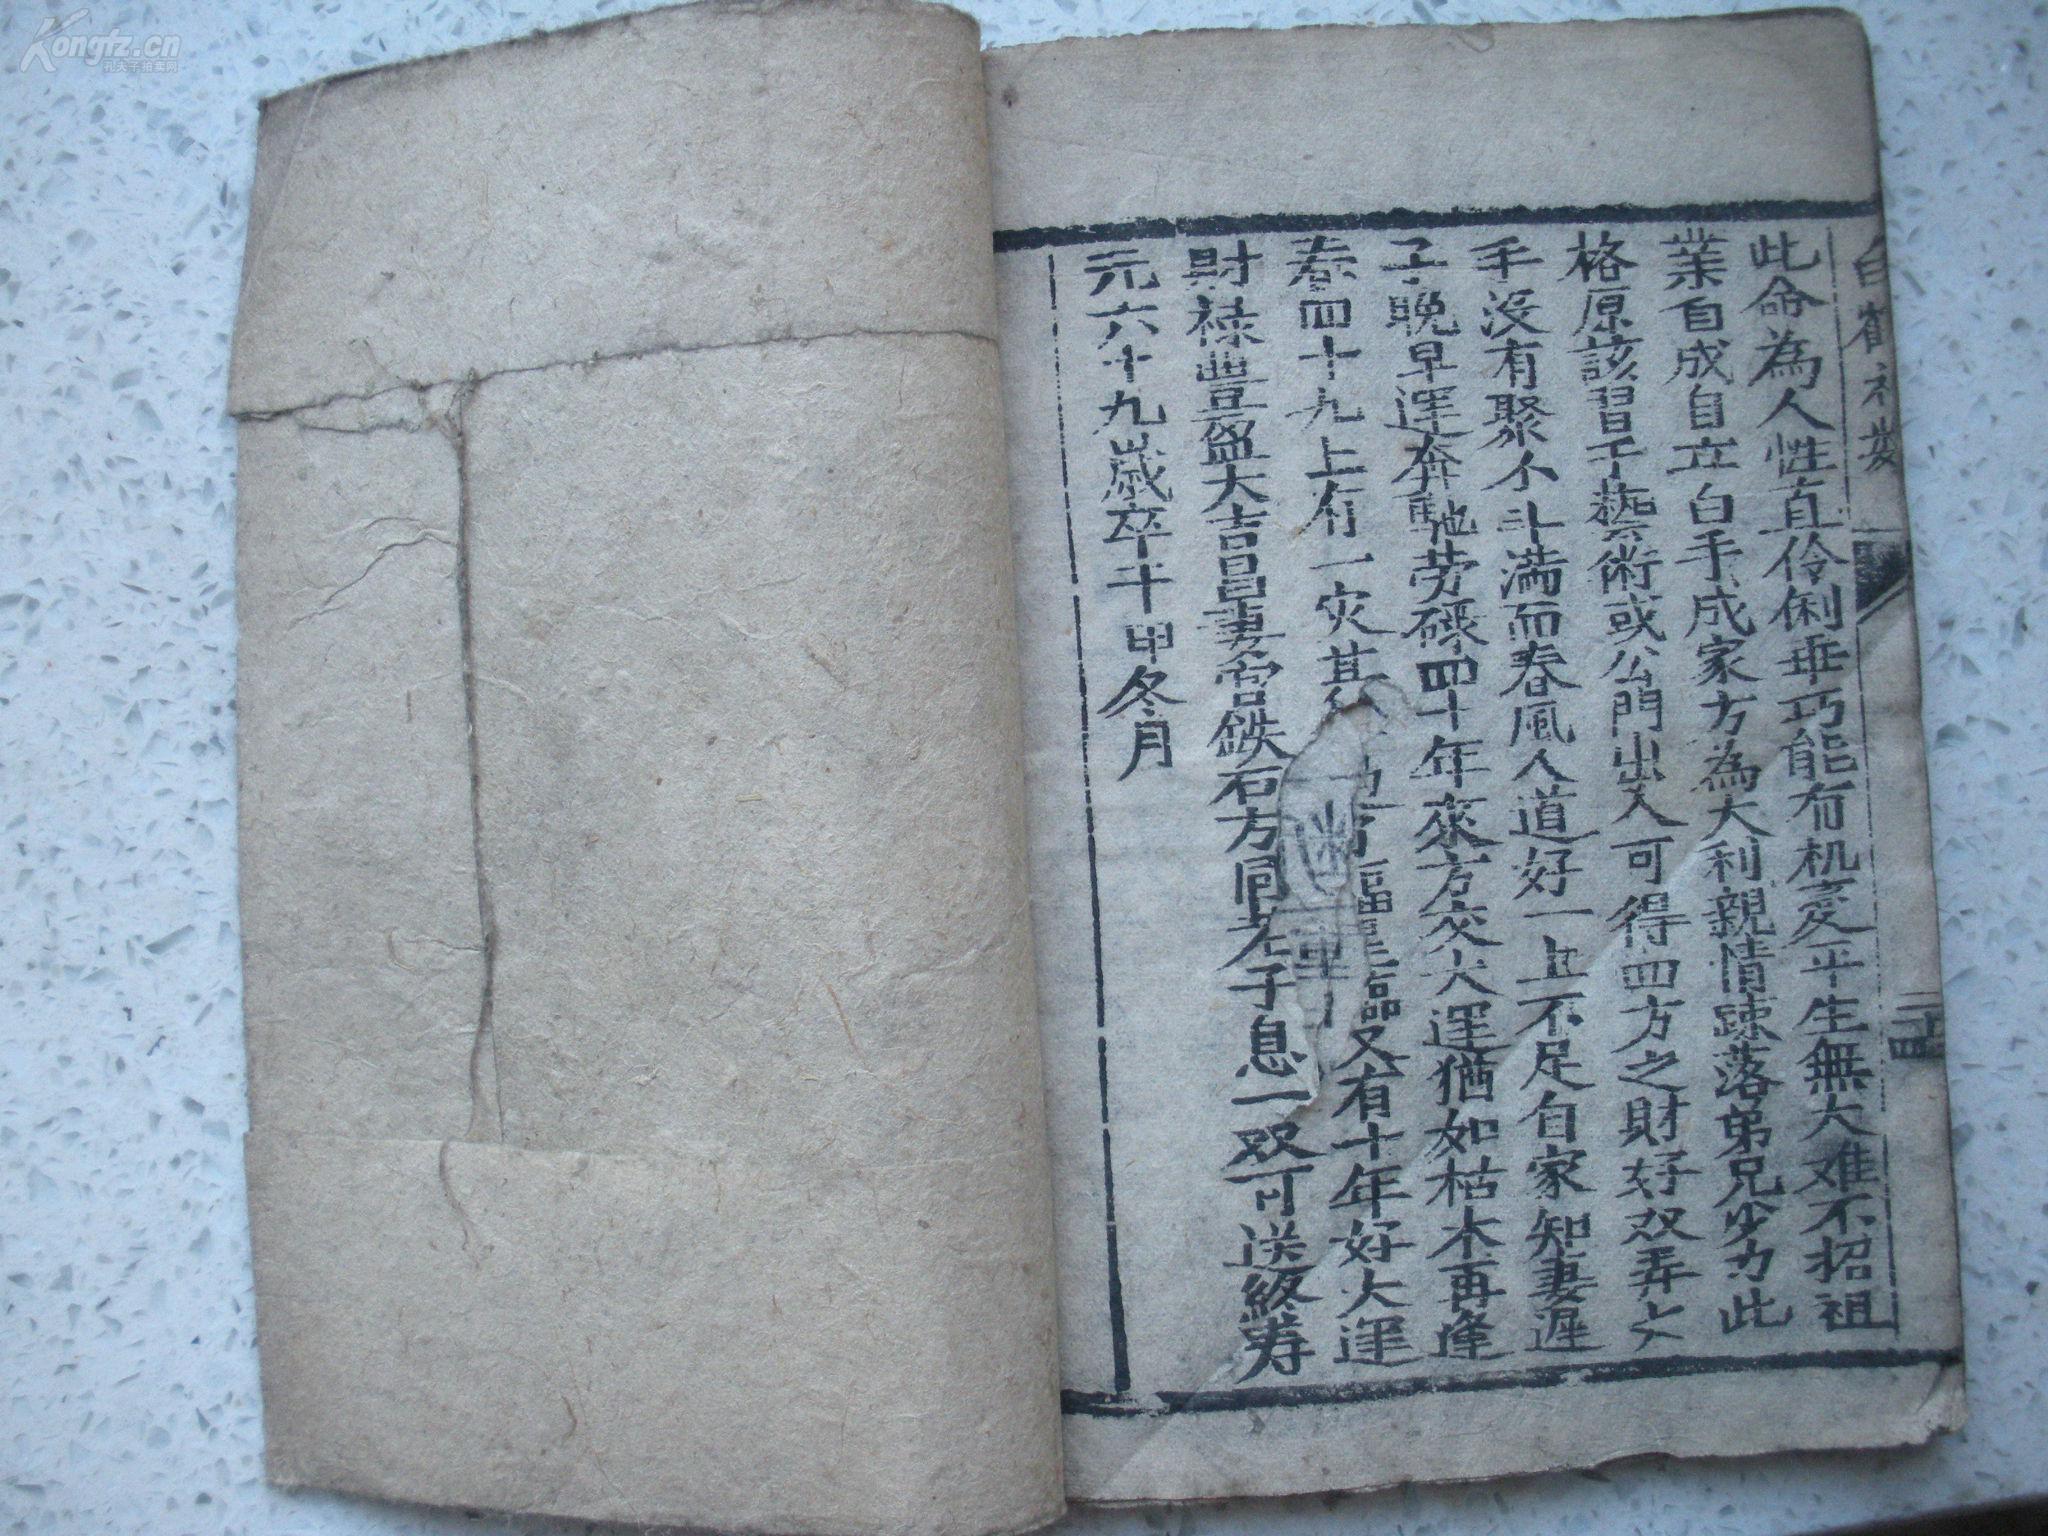 Kongfz.cn
孔夫子拍卖网
此命為人性直伶俐乖巧能有机变平生無大难不招祖
業自成自立白手成家方為大利親情踈落弟兄少力此
格原該習手藝術或公門出入可得四方之財好双弄丈
手没有聚小斗满而春風人道好一上不足自家知妻遲
子晚早運奔馳劳碌四十年來方交大運猶如枯木再逢
春四十九上有一灾其 臨又有十年好大運
財禄豊盈大吉昌妻宫鉄石方同老子息一双可送終寿
元六十九歲卒于甲冬月
二十四